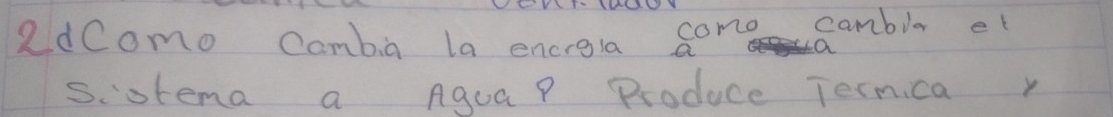 2d Como Cambia la energia como cambia el
a a
Sistema a Agua? Produce Termica y